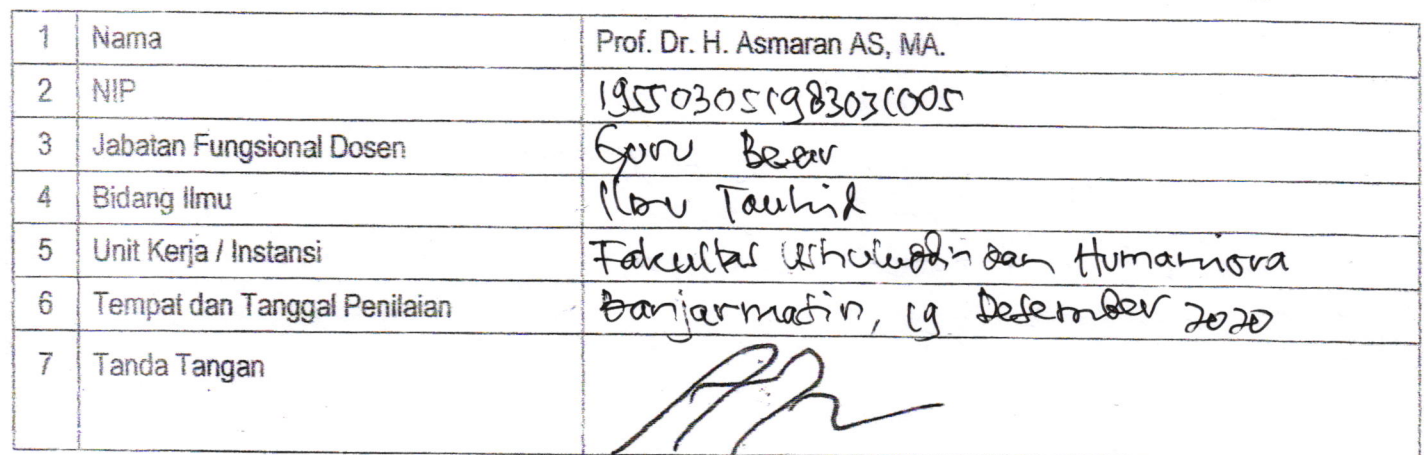 1 Nama Prof. Dr. H. Asmaran AS, MA.
2 NIP 195503051983031005
3 Jabatan Fungsional Dosen Guru Besar
4 Bidang Ilmu Ilmu Tauhid
5 Unit Kerja / Instansi Fakultas Ushuluddin dan Humaniora
6 Tempat dan Tanggal Penilaian Banjarmasin, 19 Desember 2020
7 Tanda Tangan